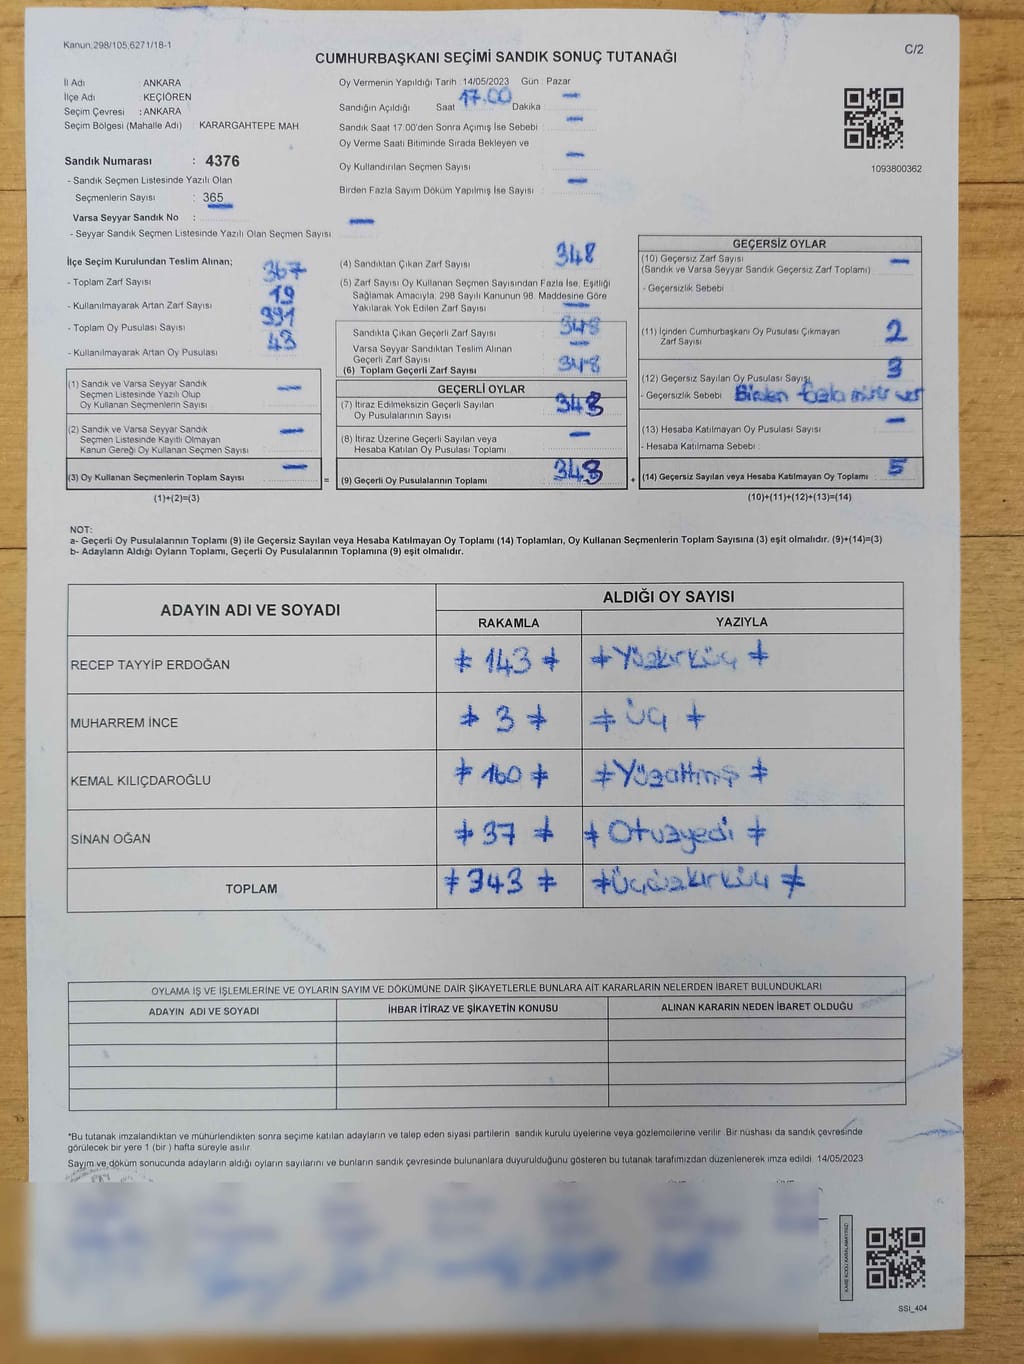 Kanun:298/105,6271/18-1
C/2
CUMHURBAŞKANI SEÇİMİ SANDIK SONUÇ TUTANAĞI
İl Adı : ANKARA
İlçe Adı : KEÇİÖREN
Seçim Çevresi : ANKARA
Seçim Bölgesi (Mahalle Adı) : KARARGAHTEPE MAH
Sandık Numarası : 4376
- Sandık Seçmen Listesinde Yazılı Olan
Seçmenlerin Sayısı : 365
Varsa Seyyar Sandık No :
- Seyyar Sandık Seçmen Listesinde Yazılı Olan Seçmen Sayısı
Oy Vermenin Yapıldığı Tarih : 14/05/2023 Gün : Pazar
Sandığın Açıldığı Saat 17.00 Dakika
Sandık Saat 17.00'den Sonra Açımış İse Sebebi :
Oy Verme Saati Bitiminde Sırada Bekleyen ve
Oy Kullandırılan Seçmen Sayısı :
Birden Fazla Sayım Döküm Yapılmış İse Sayısı :
1093800362
İlçe Seçim Kurulundan Teslim Alınan;
- Toplam Zarf Sayısı : 367
- Kullanılmayarak Artan Zarf Sayısı : 19
- Toplam Oy Pusulası Sayısı : 391
- Kullanılmayarak Artan Oy Pusulası : 43
(1) Sandık ve Varsa Seyyar Sandık
Seçmen Listesinde Yazılı Olup
Oy Kullanan Seçmenlerin Sayısı
(2) Sandık ve Varsa Seyyar Sandık
Seçmen Listesinde Kayıtlı Olmayan
Kanun Gereği Oy Kullanan Seçmen Sayısı
(3) Oy Kullanan Seçmenlerin Toplam Sayısı
(1)+(2)=(3)
=
(4) Sandıktan Çıkan Zarf Sayısı : 348
(5) Zarf Sayısı Oy Kullanan Seçmen Sayısından Fazla İse, Eşitliği
Sağlamak Amacıyla, 298 Sayılı Kanunun 98. Maddesine Göre
Yakılarak Yok Edilen Zarf Sayısı :
Sandıkta Çıkan Geçerli Zarf Sayısı 348
Varsa Seyyar Sandıktan Teslim Alınan
Geçerli Zarf Sayısı
(6) Toplam Geçerli Zarf Sayısı 348
GEÇERLİ OYLAR
(7) İtiraz Edilmeksizin Geçerli Sayılan
Oy Pusulalarının Sayısı 343
(8) İtiraz Üzerine Geçerli Sayılan veya
Hesaba Katılan Oy Pusulası Toplamı
(9) Geçerli Oy Pusulalarının Toplamı 343
+
GEÇERSİZ OYLAR
(10) Geçersiz Zarf Sayısı
(Sandık ve Varsa Seyyar Sandık Geçersiz Zarf Toplamı)
- Geçersizlik Sebebi :
(11) İçinden Cumhurbaşkanı Oy Pusulası Çıkmayan
Zarf Sayısı 2
(12) Geçersiz Sayılan Oy Pusulası Sayısı 3
- Geçersizlik Sebebi : Birden fazla mühür var
(13) Hesaba Katılmayan Oy Pusulası Sayısı
- Hesaba Katılmama Sebebi :
(14) Geçersiz Sayılan veya Hesaba Katılmayan Oy Toplamı 5
(10)+(11)+(12)+(13)=(14)
NOT:
a- Geçerli Oy Pusulalarının Toplamı (9) ile Geçersiz Sayılan veya Hesaba Katılmayan Oy Toplamı (14) Toplamları, Oy Kullanan Seçmenlerin Toplam Sayısına (3) eşit olmalıdır. (9)+(14)=(3)
b- Adayların Aldığı Oyların Toplamı, Geçerli Oy Pusulalarının Toplamına (9) eşit olmalıdır.
ADAYIN ADI VE SOYADI ALDIĞI OY SAYISI
RAKAMLA YAZIYLA
RECEP TAYYİP ERDOĞAN 143 Yüzkırküç
MUHARREM İNCE 3 Üç
KEMAL KILIÇDAROĞLU 160 Yüzaltmış
SİNAN OĞAN 37 Otuzyedi
TOPLAM 343 Üçyüzkırküç
OYLAMA İŞ VE İŞLEMLERİNE VE OYLARIN SAYIM VE DÖKÜMÜNE DAİR ŞİKAYETLERLE BUNLARA AİT KARARLARIN NELERDEN İBARET BULUNDUKLARI
ADAYIN ADI VE SOYADI İHBAR İTİRAZ VE ŞİKAYETİN KONUSU ALINAN KARARIN NEDEN İBARET OLDUĞU
*Bu tutanak imzalandıktan ve mühürlendikten sonra seçime katılan adayların ve talep eden siyasi partilerin sandık kurulu üyelerine veya gözlemcilerine verilir. Bir nüshası da sandık çevresinde
görülecek bir yere 1 (bir ) hafta süreyle asılır.
Sayım ve döküm sonucunda adayların aldığı oyların sayılarını ve bunların sandık çevresinde bulunanlara duyurulduğunu gösteren bu tutanak tarafımızdan düzenlenerek imza edildi 14/05/2023
KARE KODU KARALAMAYINIZ!
SSI_404